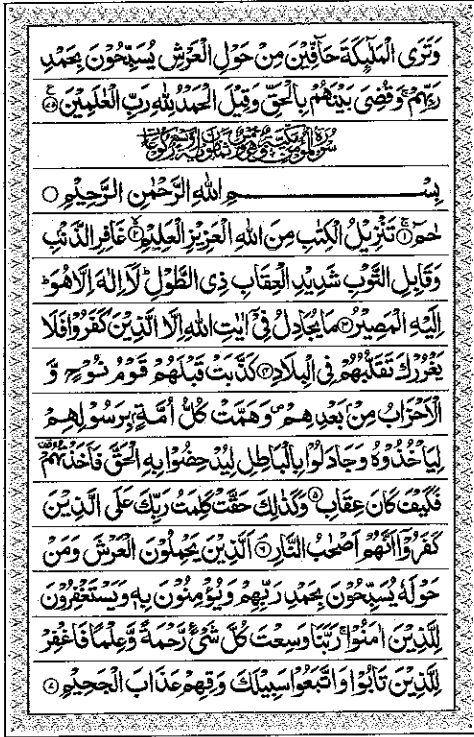 وَتَرَى الْمَلٰٓئِكَةَ حَآفِّيْنَ مِنْ حَوْلِ الْعَرْشِ يُسَبِّحُوْنَ بِحَمْدِ
رَبِّهِمْ ۚ وَقُضِيَ بَيْنَهُمْ بِالْحَقِّ وَقِيْلَ الْحَمْدُ لِلّٰهِ رَبِّ الْعٰلَمِيْنَ ﴿۷۵﴾ ع
سُوْرَةُ الْمُؤْمِنِ مَكِّيَّةٌ وَّهِيَ
بِسْمِ اللّٰهِ الرَّحْمٰنِ الرَّحِيْمِ ○
حٰمٓ ﴿۱﴾ تَنْزِيْلُ الْكِتٰبِ مِنَ اللّٰهِ الْعَزِيْزِ الْعَلِيْمِ ﴿۲﴾ غَافِرِ الذَّنْۢبِ
وَقَابِلِ التَّوْبِ شَدِيْدِ الْعِقَابِ ذِى الطَّوْلِ ؕ لَاۤ اِلٰهَ اِلَّا هُوَ ؕ
اِلَيْهِ الْمَصِيْرُ ﴿۳﴾ مَا يُجَادِلُ فِيْۤ اٰيٰتِ اللّٰهِ اِلَّا الَّذِيْنَ كَفَرُوْا فَلَا
يَغْرُرْكَ تَقَلُّبُهُمْ فِى الْبِلَادِ ﴿۴﴾ كَذَّبَتْ قَبْلَهُمْ قَوْمُ نُوْحٍ وَّ
الْاَحْزَابُ مِنْۢ بَعْدِهِمْ ۪ وَهَمَّتْ كُلُّ اُمَّةٍۭ بِرَسُوْلِهِمْ
لِيَاْخُذُوْهُ وَجَادَلُوْا بِالْبَاطِلِ لِيُدْحِضُوْا بِهِ الْحَقَّ فَاَخَذْتُهُمْ
فَكَيْفَ كَانَ عِقَابِ ﴿۵﴾ وَكَذٰلِكَ حَقَّتْ كَلِمَتُ رَبِّكَ عَلَى الَّذِيْنَ
كَفَرُوْۤا اَنَّهُمْ اَصْحٰبُ النَّارِ ﴿۶﴾ اَلَّذِيْنَ يَحْمِلُوْنَ الْعَرْشَ وَمَنْ
حَوْلَهٗ يُسَبِّحُوْنَ بِحَمْدِ رَبِّهِمْ وَيُؤْمِنُوْنَ بِهٖ وَيَسْتَغْفِرُوْنَ
لِلَّذِيْنَ اٰمَنُوْا ۚ رَبَّنَا وَسِعْتَ كُلَّ شَيْءٍ رَّحْمَةً وَّعِلْمًا فَاغْفِرْ
لِلَّذِيْنَ تَابُوْا وَاتَّبَعُوْا سَبِيْلَكَ وَقِهِمْ عَذَابَ الْجَحِيْمِ ﴿۷﴾